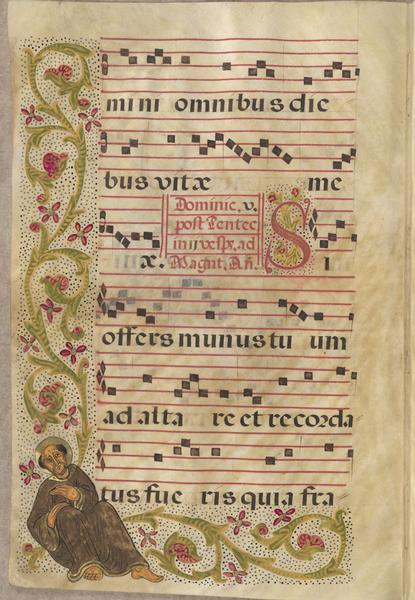 mini omnibus die
bus vitæ me
Dominic. v.
post Pentec
in ii vesp. ad
Magnt. Añ.
æ. Si
offers munus tu um
ad alta re et recorda
tus fue ris quia fra